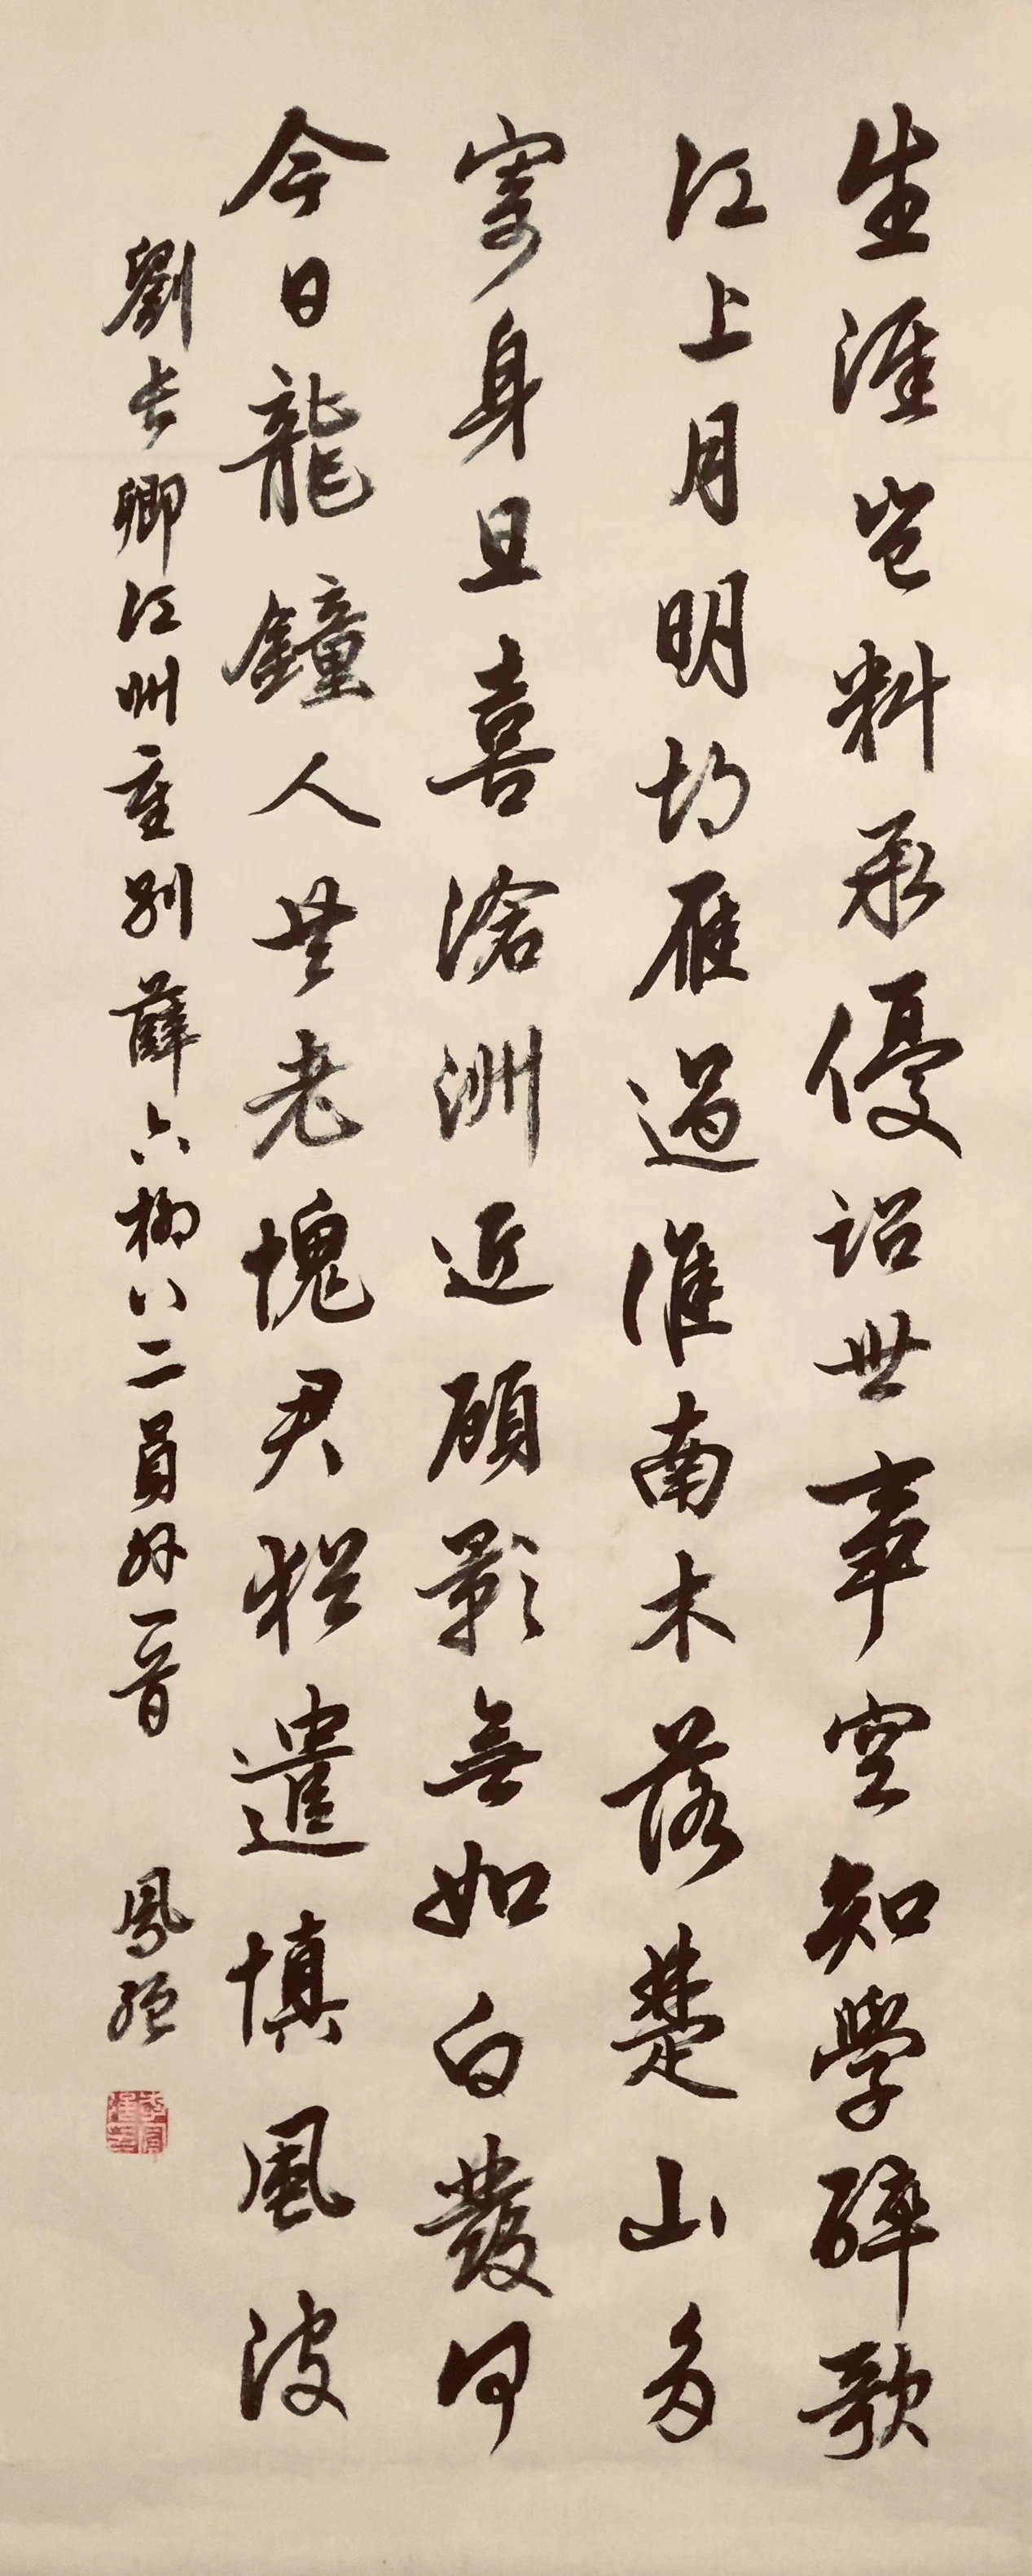 生涯豈料承優詔世事空知學醉歌
江上月明胡雁過淮南木落楚山多
寄身且喜滄洲近顧影無如白發何
今日龍鐘人共老愧君猶遣慎風波
劉長卿江州重別薛六柳八二員外一首 鳳強